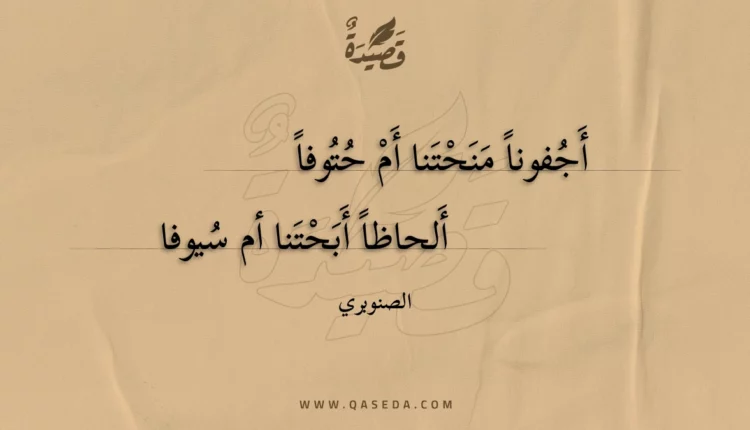 قَصِيدَةٌ
أَجُفوناً مَنَحْتَنا أَمْ حُتُوفاً
أَلحاظاً أَبَحْتَنا أم سُيوفا
الصنوبري
WWW.QASEDA.COM